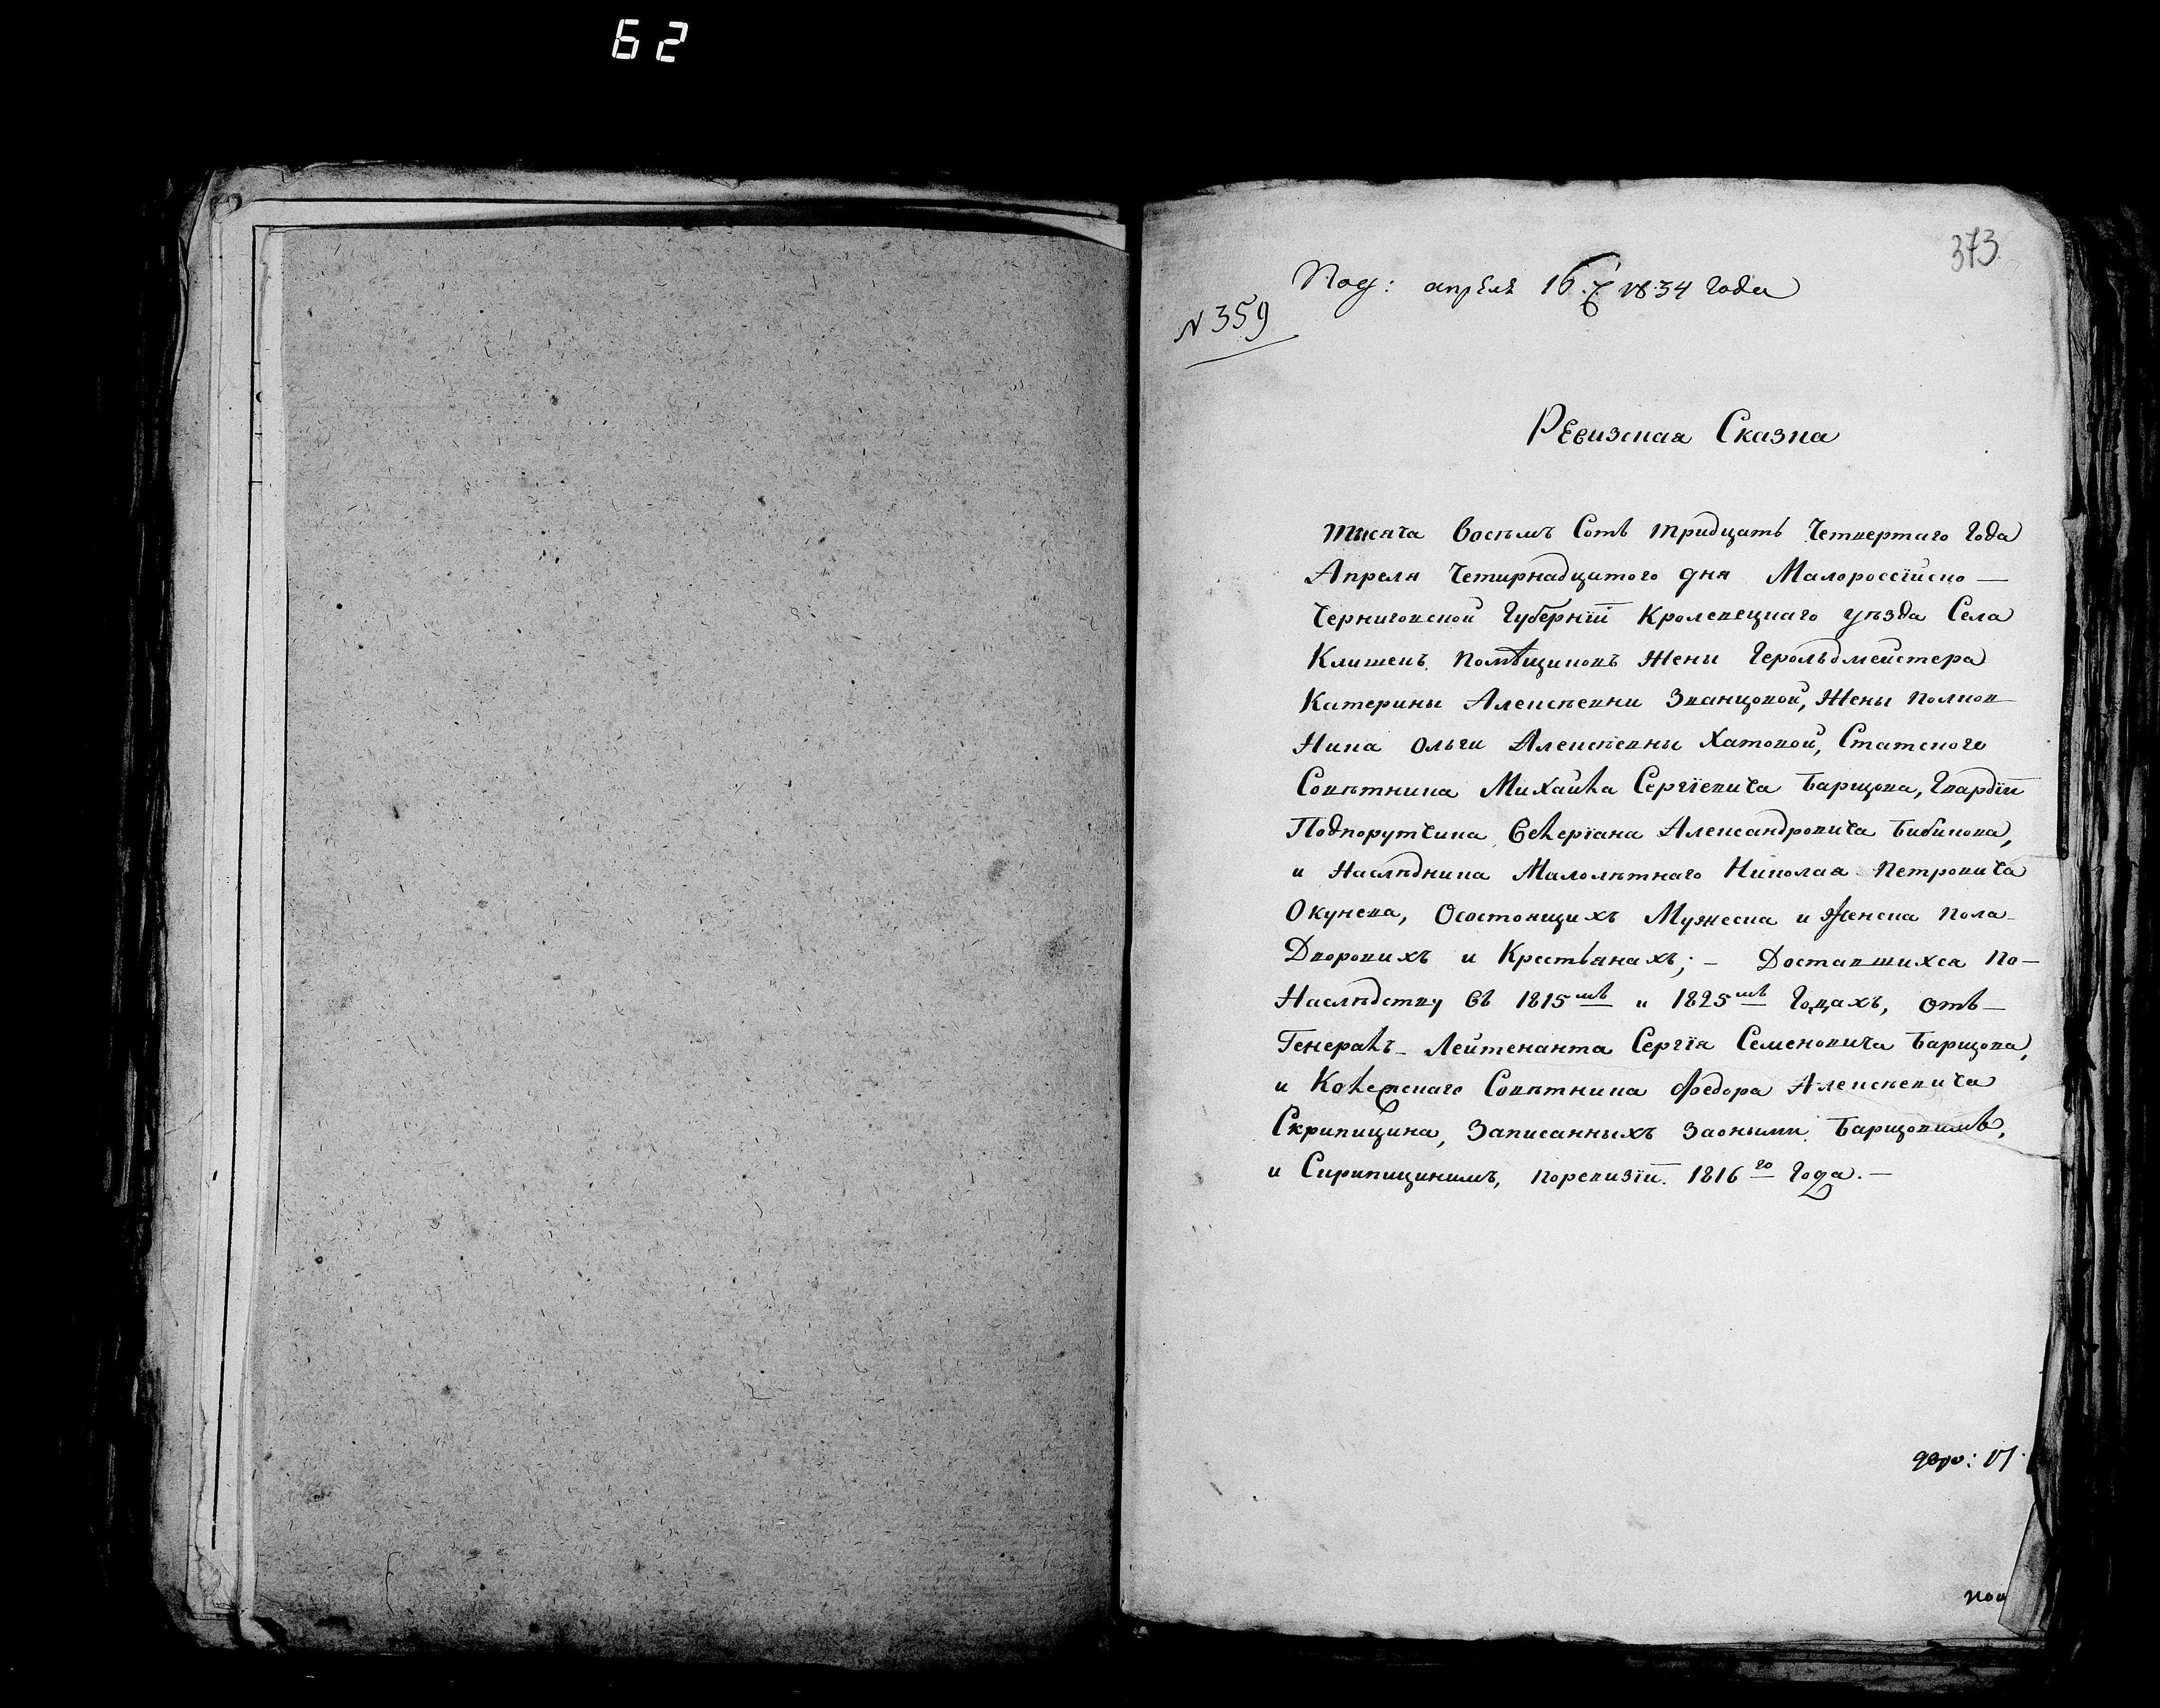 62
373
Под: апреля 16 1834 года
N 359
Ревизская Сказка
Тысяча Восемъ Сотъ Тридцать Четвертаго Года
Апреля Четирнадцатого дня Малоросссійско —
Черниговской Губерніи Кролевецкаго уѣзда Села
Клишекъ Помѣщиковъ Жены Герольдмейстера
Катерины Алексѣевни Званцовой, Жены Полков
Ника Ольги Алексѣевны Хатовой, Статского
Совѣтника Михайла Сергіевича Барщова, Гвардіи
Подпорутчика Велеріана Александровича Бибикова,
и Наслѣдника Малолѣтнаго Николая Петровича
Окунева, Осостоящихъ Мужеска и Женска пола
Дворовихъ и Крестьянахъ; — Доставшихся По—
Наслѣдству Въ 1815мъ и 1825мъ Годахъ, отъ—
Генералъ-Лейтенанта Сергія Семеновича Барщова,
и Колежскаго Совѣтника Федора Алексѣевича
Скрипицина, Записанныхъ Заоными Барщовимъ,
и Скрипицинимъ, поревизіи 1816го Года. —